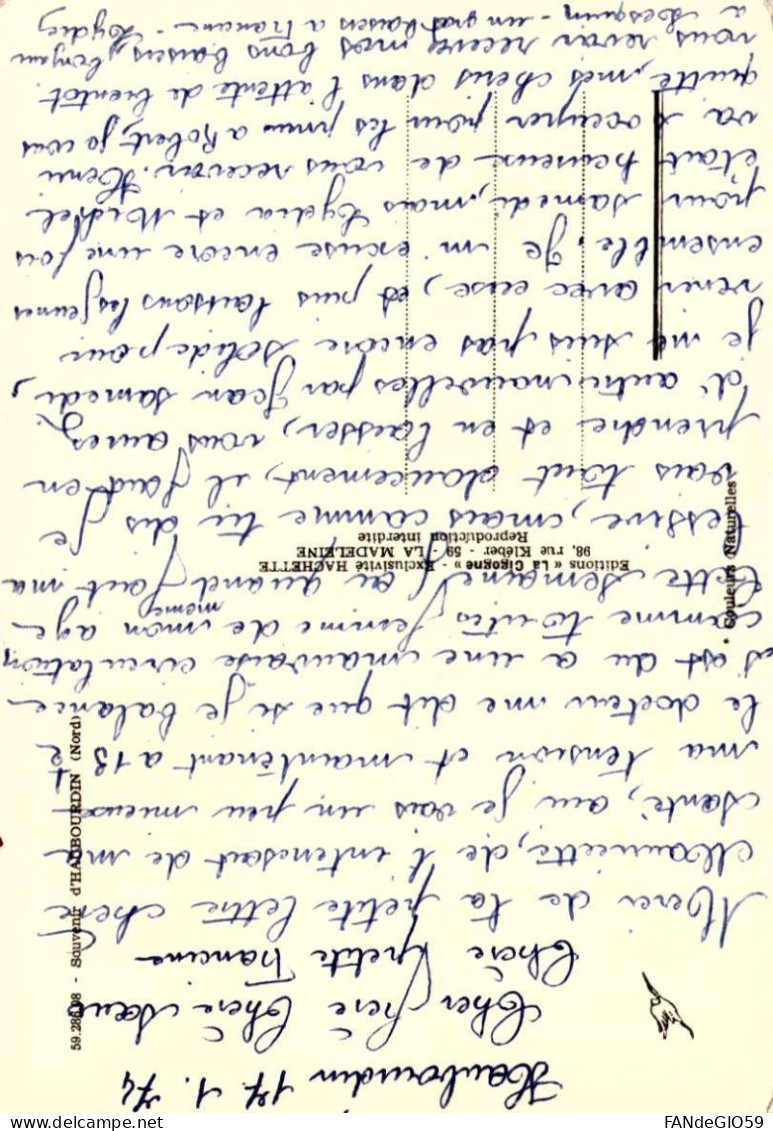 Haubourdin 17.1.74
Cher frère Chère Sœur
Chère petite Francine
Merci de ta petite lettre chère
Mauricette, de t'intéressait de ma
santé, au je vais un peu mieux
ma tension et maintenant a 13 et
le docteur me dit que si je balance
s'est du a une mauvaise circulation
comme toutes femme de mon age
meme
cette semaine j'au quand fait ma
lessive, mais comme tu dis je
vais tout doucement, il faut en
prendre et en laisser, vous aurez
d'autre nouvelles par Jean samedi,
je ne suis pas encore solide pour
venir avec eusse, et puis laissons les jeunes
ensemble. Je m'excuse encore une fois
pour samedi, mais Lydia et Michel
était heureux de vous recevoir. Henri
va s'occuper pour les pneus a Robert, je vous
quitte, mes chers dans l'attente de bientot
vous revoir recever mes bons baisers,
a Lesquin - un gros baisers a Francine - Lydie
59.286.98 - Souvenir d'HAUBOURDIN (Nord)
Editions « La Cigogne » - Exclusivité HACHETTE
98, rue Kléber - 59 - LA MADELEINE
Reproduction interdite
• Couleurs Naturelles
FANdeGIO59